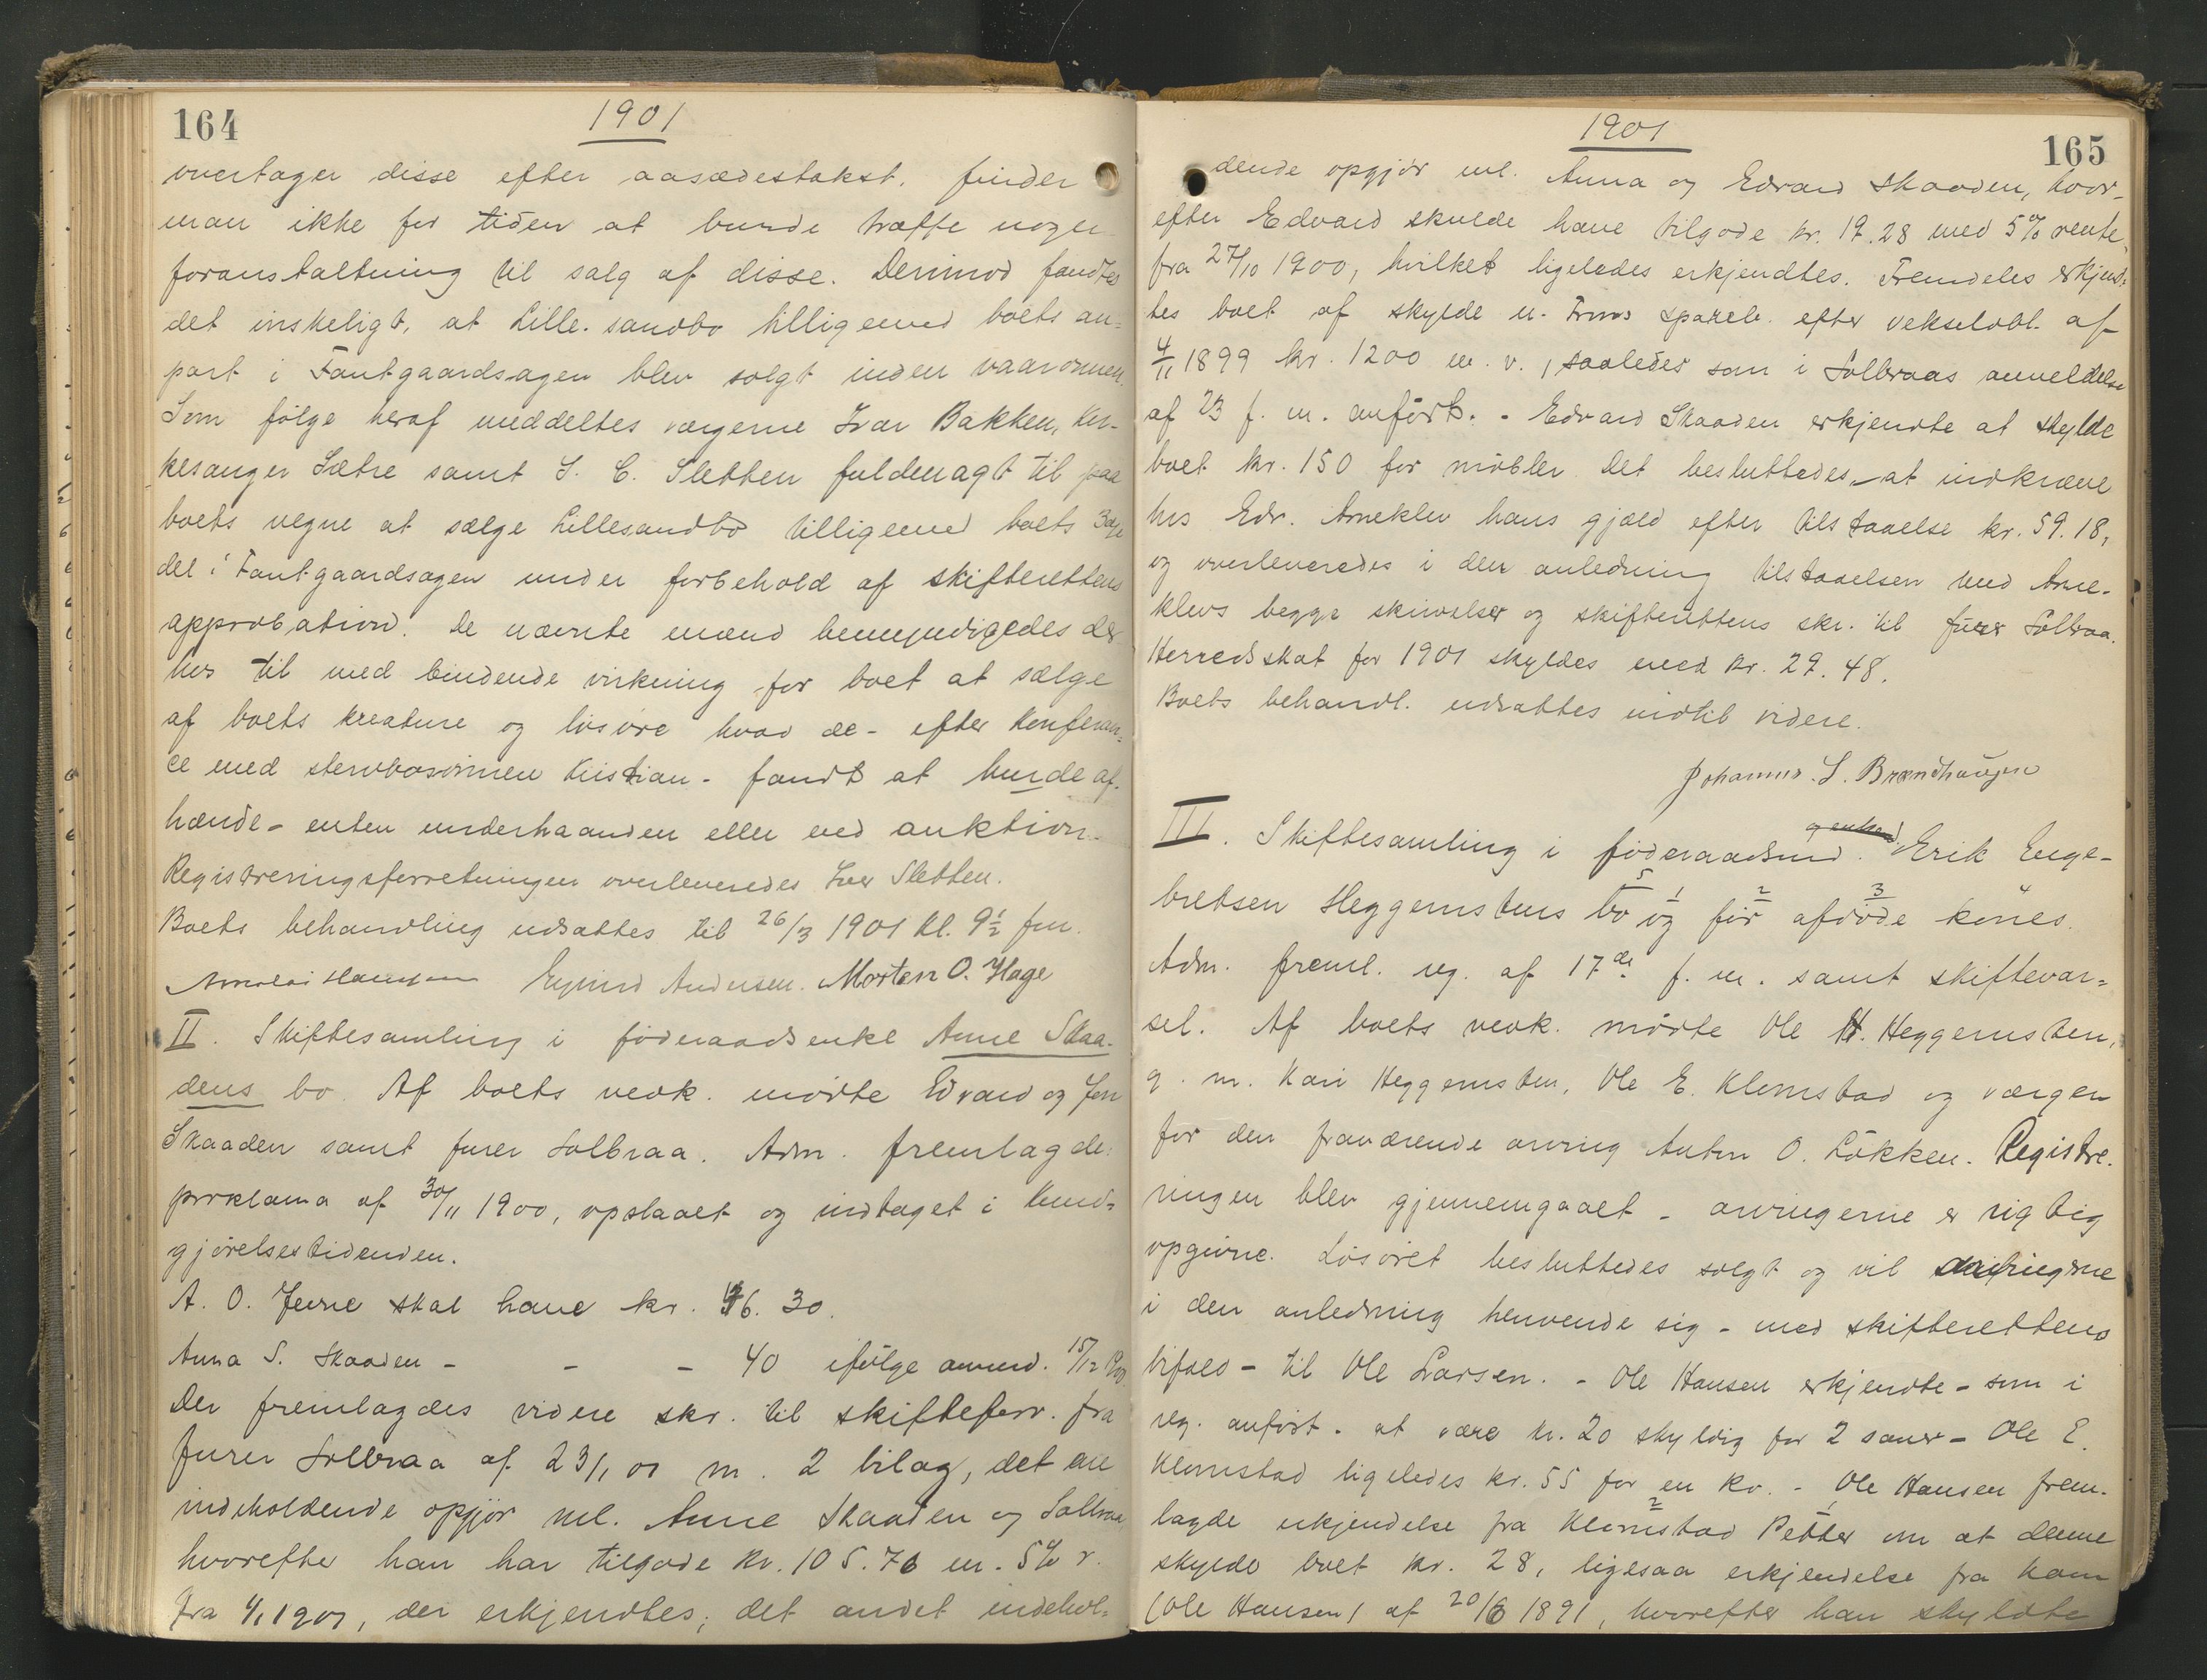 164
1901
overtager disse efter aasædestakst, finder
man ikke for tiden at burde træffe nogen
foranstaltning til salg af disse. Derimod fandtes
det ønskeligt, at Lille-sandbo tilligemed boets an=
part i Fautgaardsagen blev solgt inden vaaronnen.
Som følge heraf meddeltes værgerne Ivar Bakken, kir-
kesanger Sætre samt S. C. Sletten fuldmagt til paa
boets vegne at sælge Lillesandbo tilligemed boets
del i Fautgaardsagen under forbehold af skifterettens
approbation. De nævnte mænd bemyndigedes der
hos til med bindende virkning for boet at sælge
af boets kreature og løsøre hvad de - efter konferan=
ce med stervbosønnen Kristian - fandt at burde af-
hænde - enten underhaanden eller ved auktion.
Registreringsforretningen overleveredes Sletten.
Boets behandling udsattes til 26/3 1901 kl. 9½ fm.
Eyvind Andersen. Morten O. Hage
II. Skiftesamling i føderaadsenke Anne Skaa-
dens bo. Af boets vedk. mødte Edvard og Jon
Skaaden samt furer Solbraa. Adm. fremlagde:
proklama af 30/11 1900, opslaaet og indtaget i Kund=
gjørelsestidenden.
A. O. skal have kr. 6. 30.
Anna S. Skaaden - - - 40 ifølge anmd. 15/12 1900
Der fremlagdes videre skr. til skifteforv. fra
furer Solbraa af 23/1 01 m. 2 bilag, det ene
indeholdende opgjør ml. Anne Skaaden og Solbraa,
hvorefter han har tilgode kr. 105.76 m. 5% r.
fra 1/1 1901, der erkjendtes; det andet indehol=
1901
165
dende opgjør ml. Anna og Edvard Skaaden, hvor-
efter Edvard skulde have tilgode kr. 19.28 med 5% rente
fra 27/10 1900, hvilket ligeledes erkjendtes. Fremdeles erkjend=
tes boet at skylde n. Frons spareb. efter vekselobl. af
4/11 1899 kr. 1200 m. v., saaledes som i Solbraas anmeldelse
af 23 f. m. anført. - Edvard Skaaden erkjendte at skylde
boet kr. 150 for møbler. Det besluttedes, at indkræve
hos Edv. Arneklev hans gjæld efter tilstaaelse kr. 59.18,
og overleveredes i den anledning tilstaaelsen med Arne-
klevs begge skrivelser og skifterettens skr. til furer Solbraa.
Herredsskat for 1901 skyldes med kr. 29.48.
Boets behandl. udsattes indtil videre.
Johannes. S. Brændhaugen
III. Skiftesamling i føderaadsmd. Erik Enge-
bretsen Heggernstens bo og før afdøde kones.
Adm. freml. reg. af 17de f. m. samt skiftevar=
sel. Af boets vedk. mødte Ole H. Heggernsten,
g. m. Kari Heggernsten, Ole E. Klomstad og værgen
for den fraværende arving Anton O. Løkken. Registre.
ringen blev gjennemgaaet - arvingerne er rigtig
opgivne. Løsøret besluttedes solgt og vil arvingerne
i den anledning henvende sig - med skifterettens
bifald - til Ole Larsen. - Ole Hansen erkjendte - som i
reg. anført - at være kr. 20 skyldig for 2 sauer - Ole E.
Klomstad ligeledes kr. 55 for en ko. - Ole Hansen frem-
lagde erkjendelse fra Klomstad Petter om at denne
skyldo boet kr. 28, ligesaa erkjendelse fra ham
(Ole Hansen) af 20/6 1891, hvorefter han skyldte